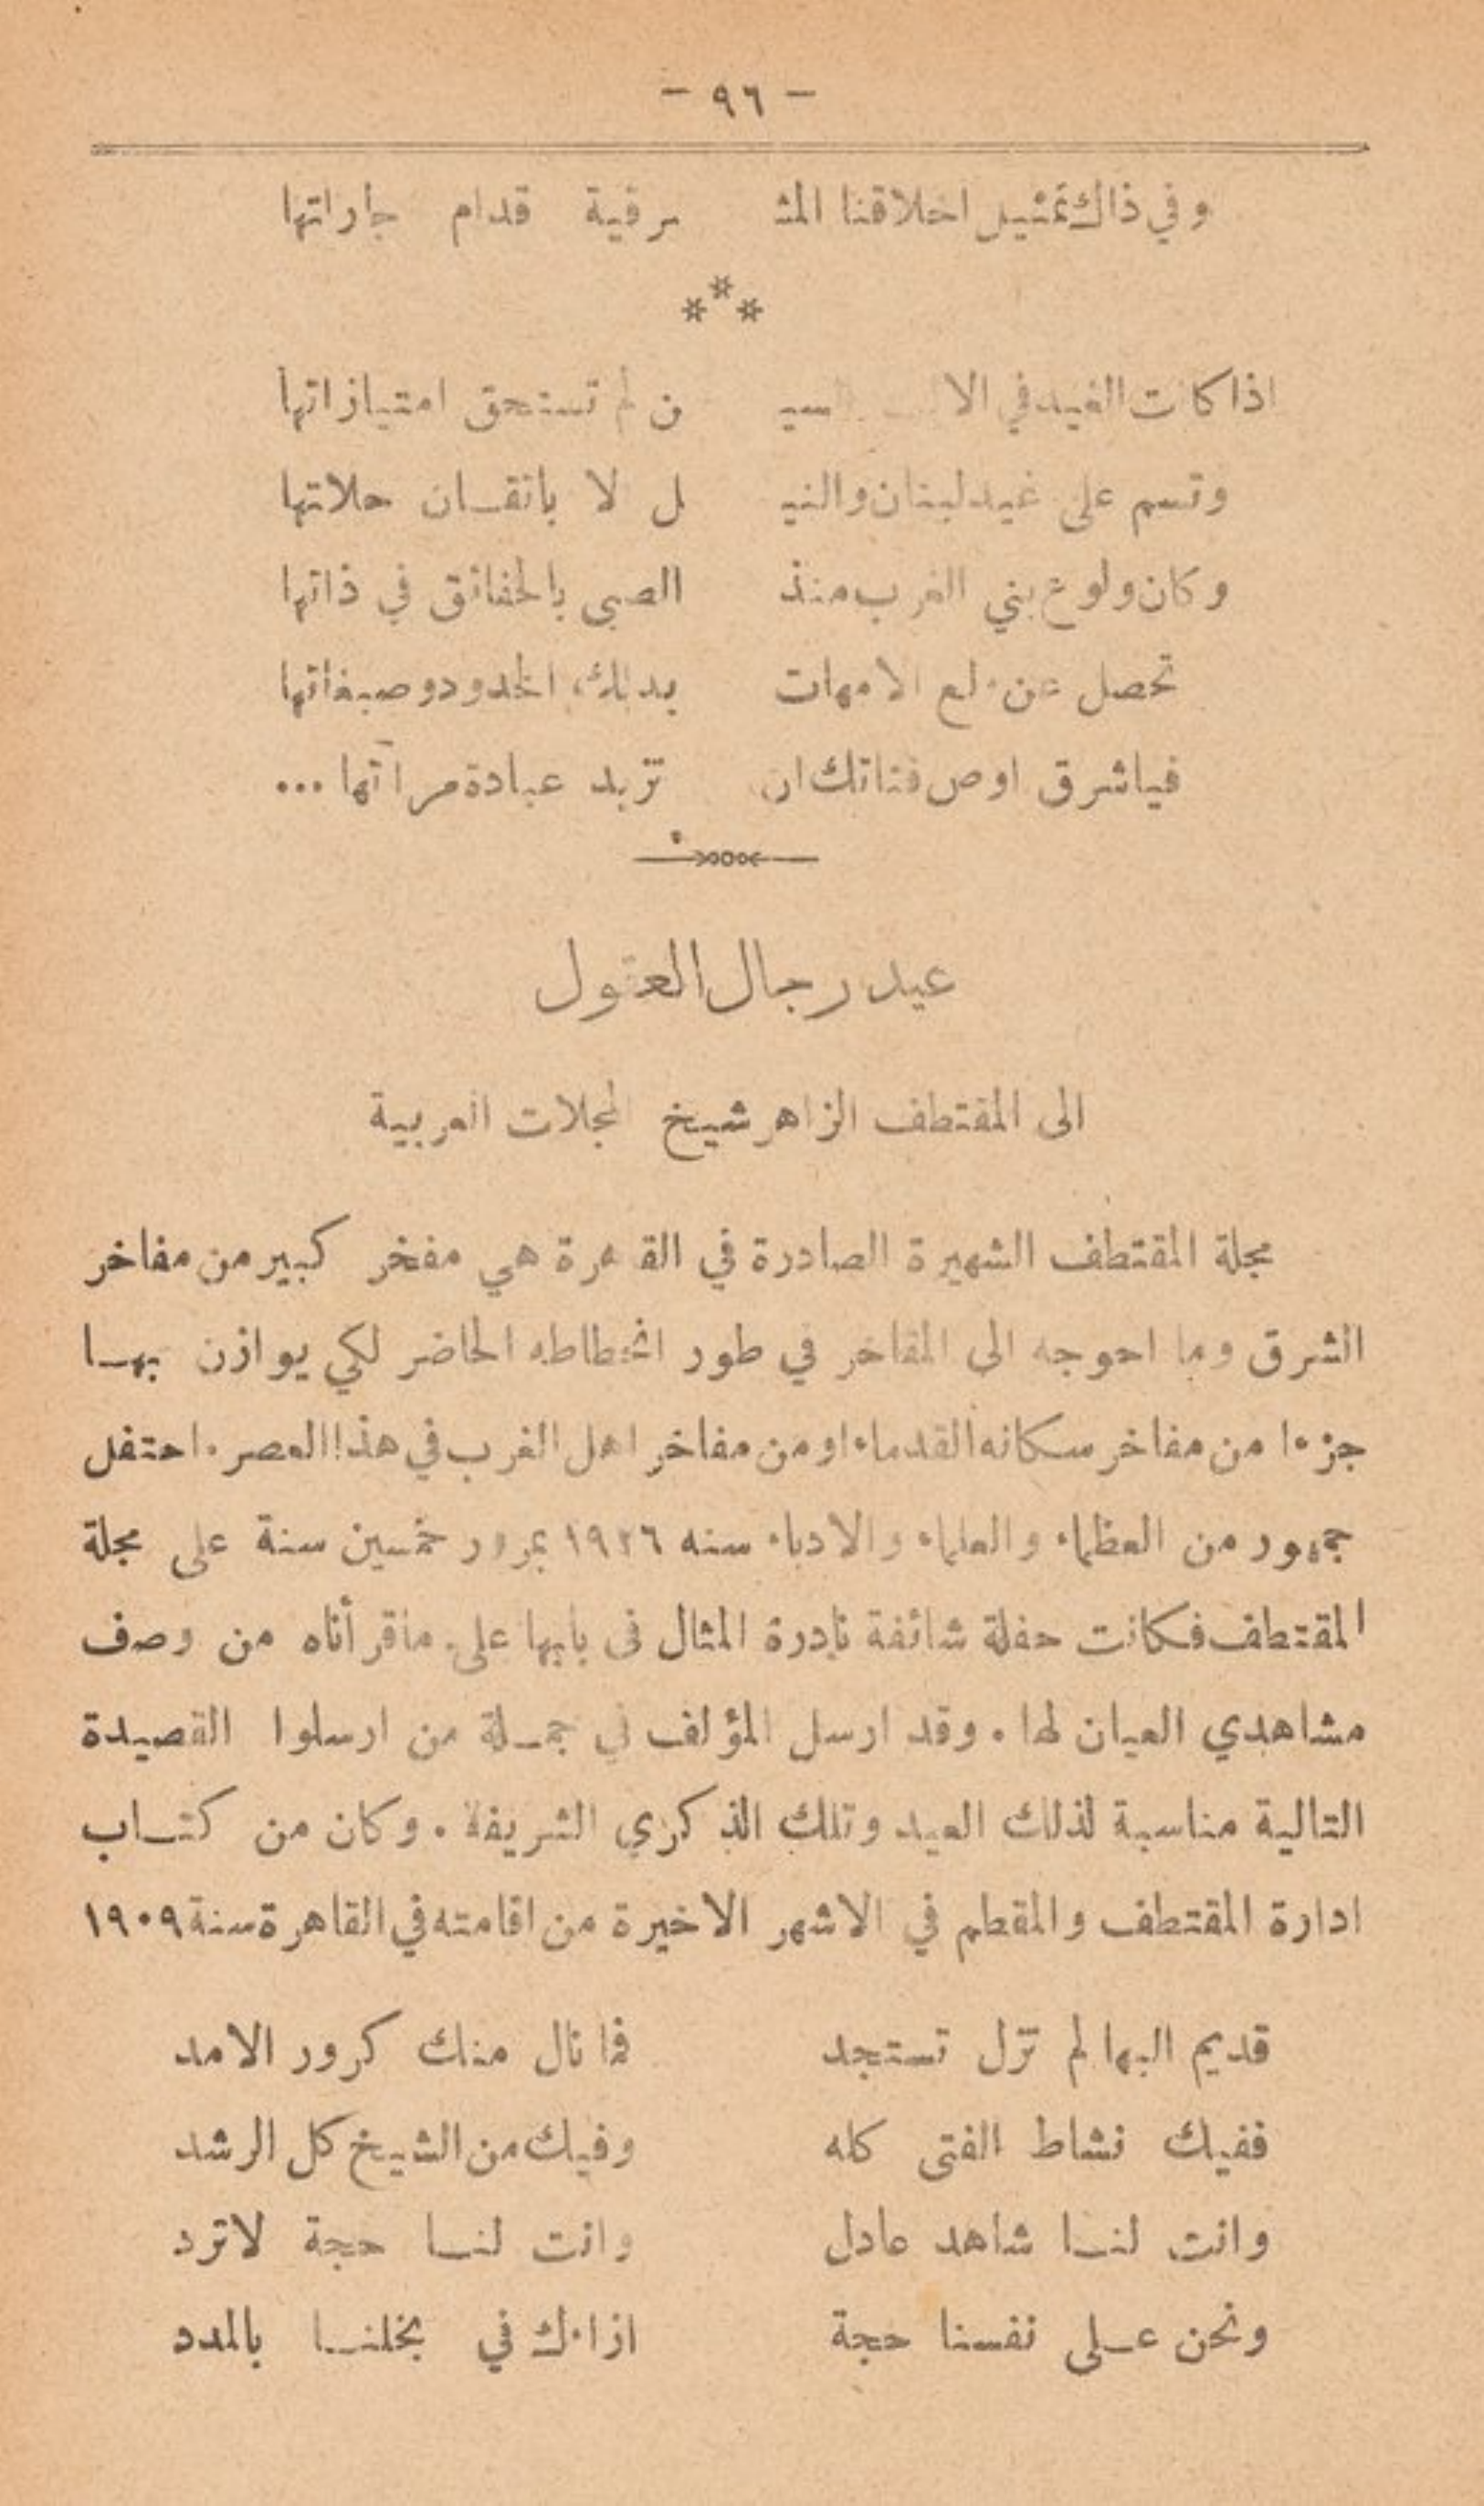 - ٩٦ -
وفي ذاك تمثيل اخلاقنا المشـ ـرقية قدام جاراتها
***
اذا كانت الغيد في ن لم تستحق امتيازاتها
وتسم على غيد لبنان والنيـ ـل لا باتقـان حلاتها
وكان ولوع بني الغرب منذ الصبى بالحقائق في ذاتها
تحصل عن ولع الامهات بدلك الخدود وصبغاتها
فيا شرق اوص فتاتك ان تزيد عبادة مرآتها ...
عيد رجال العقول
الى المقتطف الزاهر شيخ المجلات العربية
مجلة المقتطف الشهيرة الصادرة في القاهرة هي مفخر كبير من مفاخر
الشرق وما احوجه الى المفاخر في طور انحطاطه الحاضر لكي يوازن بهـا
جزءا من مفاخر سكانه القدماء او من مفاخر اهل الغرب في هذا العصر. احتفل
جمهور من العظماء والعلماء والادباء سنه ١٩٢٦ بمرور خمسين سنة على مجلة
المقتطف فكانت حفلة شائقة نادرة المثال في بابها على ماقرأناه من وصف
مشاهدي العيان لها. وقد ارسل المؤلف في جمـلة من ارسلوا القصيدة
التالية مناسبة لذلك العيد وتلك الذكرى الشريفة. وكان من كتـاب
ادارة المقتطف والمقطم في الاشهر الاخيرة من اقامته في القاهرة سنة ١٩٠٩
قديم البها لم تزل تستجد فما نال منك كرور الامد
ففيك نشاط الفتى كله وفيك من الشيخ كل الرشد
وانت لنـا شاهد عادل وانت لنـا حجة لاترد
ونحن عـلى نفسنا حجة ازاءك في بخلنـا بالمدد